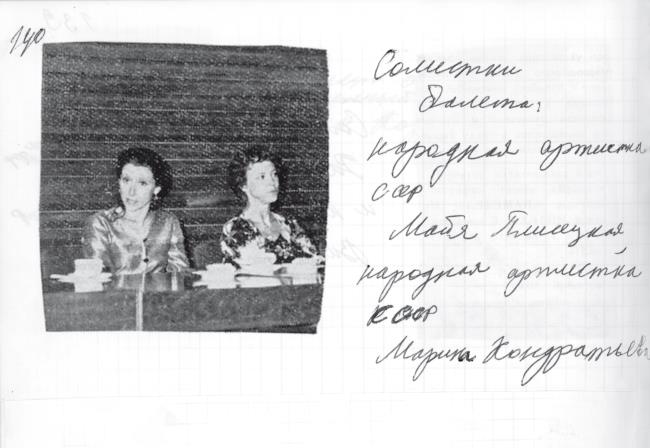 140
Солистки
балета:
народная артистка
СССР
Майя Плисецкая,
народная артистка
СССР
Марина Кондратьева